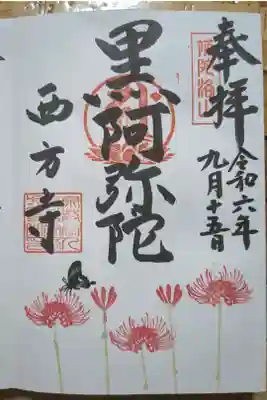 奉拝
令和六年
九月十五日
黒阿弥陀
西方寺